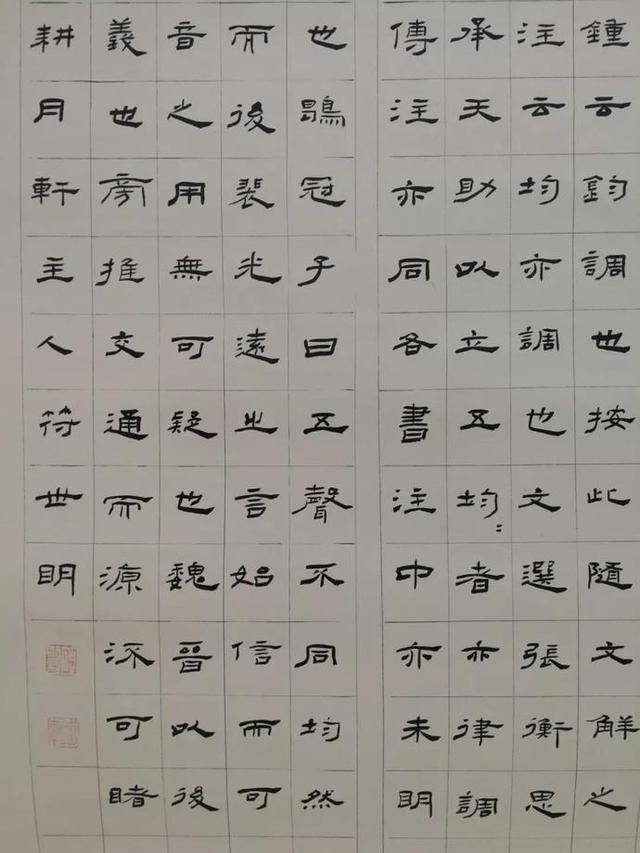 鍾云鈞調也按此隨文解之
注云均亦調也文選張衡思
承天助以立五均〻者亦律調
傳注亦同各書注中亦未明
也鶡冠子曰五聲不同均然
而後裴光遠之言始信而可
音之用無可疑也魏晉以後
義也旁推交通而源流可睹
耕月軒主人符世明